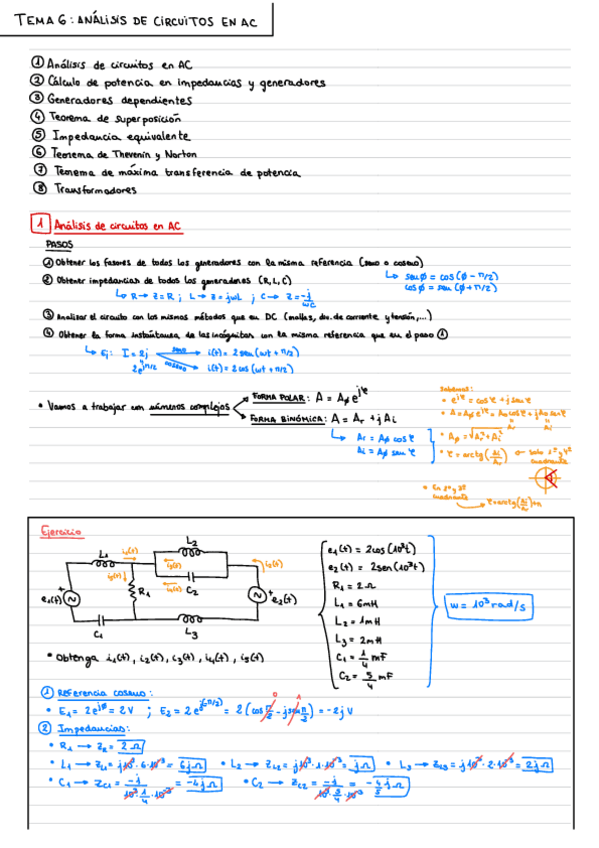 TEMA 6: ANÁLISIS DE CIRCUITOS EN AC
① Análisis de circuitos en AC
② Cálculo de potencia en impedancias y generadores
③ Generadores dependientes
④ Teorema de superposición
⑤ Impedancia equivalente
⑥ Teorema de Thevenin y Norton
⑦ Teorema de máxima transferencia de potencia
⑧ Transformadores
1 Análisis de circuitos en AC
PASOS
① Obtener los fasores de todos los generadores con la misma referencia (seno o coseno)
↳ senø = cos(ø - π/2)
cosø = sen(ø + π/2)
② Obtener impedancias de todos los generadores (R, L, C)
↳ R → Z = R ; L → Z = jωL ; C → Z = -j/ωC
③ Analizar el circuito con los mismos métodos que en DC (mallas, div. de corriente y tensión,...)
④ Obtener la forma instantánea de las incógnitas con la misma referencia que en el paso ①
↳ Ej: I = 2j seno → i(t) = 2sen(ωt + π/2)
2e^jπ/2 coseno → i(t) = 2cos(ωt + π/2)
• Vamos a trabajar con números complejos
FORMA POLAR: A = Aø e^jφ
FORMA BINÓMICA: A = Ar + jAi
↳ Ar = Aø cosφ
Ai = Aø senφ
Sabemos:
• e^jφ = cosφ + jsenφ
• A = Aø e^jφ = Aø cosφ + jAø senφ
Ar Ai
• Aø = √Ar² + Ai²
• φ = arctg(Ai/Ar) → solo 1º y 4º cuadrante
* En 2º y 3º cuadrante → φ = arctg(Ai/Ar) + π
Ejercicio
L1 i1(t) L2 i3(t) i2(t)
i5(t) i4(t)
e1(t) R1 C2 e2(t)
C1 L3
e1(t) = 2cos(10³t)
e2(t) = 2sen(10³t)
R1 = 2Ω
L1 = 6mH
L2 = 1mH
L3 = 2mH
C1 = 1/4 mF
C2 = 5/4 mF
ω = 10³ rad/s
• Obtenga i1(t), i2(t), i3(t), i4(t), i5(t)
① Referencia coseno:
• E1 = 2e^jø = 2V ; E2 = 2e^j(-π/2) = 2(cos π/2 - jsen π/2) = -2jV
② Impedancias:
• R1 → ZR = 2Ω
• L1 → ZL1 = j10³·6·10⁻³ = 6jΩ • L2 → ZL2 = j10³·1·10⁻³ = jΩ • L3 → ZL3 = j10³·2·10⁻³ = 2jΩ
• C1 → ZC1 = -j/10³·1/4·10⁻³ = -4jΩ • C2 → ZC2 = -j/10³·5/4·10⁻³ = -4/5 jΩ